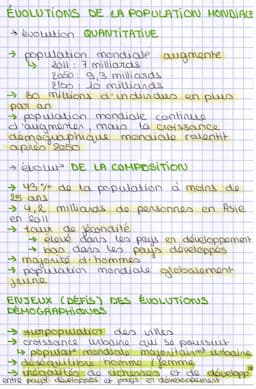 ÉVOLUTIONS DE LA POPULATION MONDIALE
→ évolution QUANTITATIVE
→ population mondiale augmente
↳ 2011 : 7 milliards
2050 : 9,3 milliards
2100 : 10 milliards
→ 80 millions d'individus en plus
par an
→ population mondiale continue
d'augmenter, mais la croissance
démographique mondiale ralentit
après 2050
→ évolu° DE LA COMPOSITION
→ 43 % de la population a moins de
25 ans
→ 4,2 milliards de personnes en Asie
en 2011
→ taux de fécondité
→ élevé dans les pays en développement
→ bas dans les pays développés
→ majorité d'hommes
→ population mondiale globalement
jeune
ENJEUX (DÉFIS) DES ÉVOLUTIONS
DÉMOGRAPHIQUES
→ surpopulation des villes
→ croissance urbaine qui se poursuit
↳ populat° mondiale majoritairemt urbaine
→ déséquilibre homme / femme
→ inégalités de richesses et de développt
entre pays développés et pays en développement